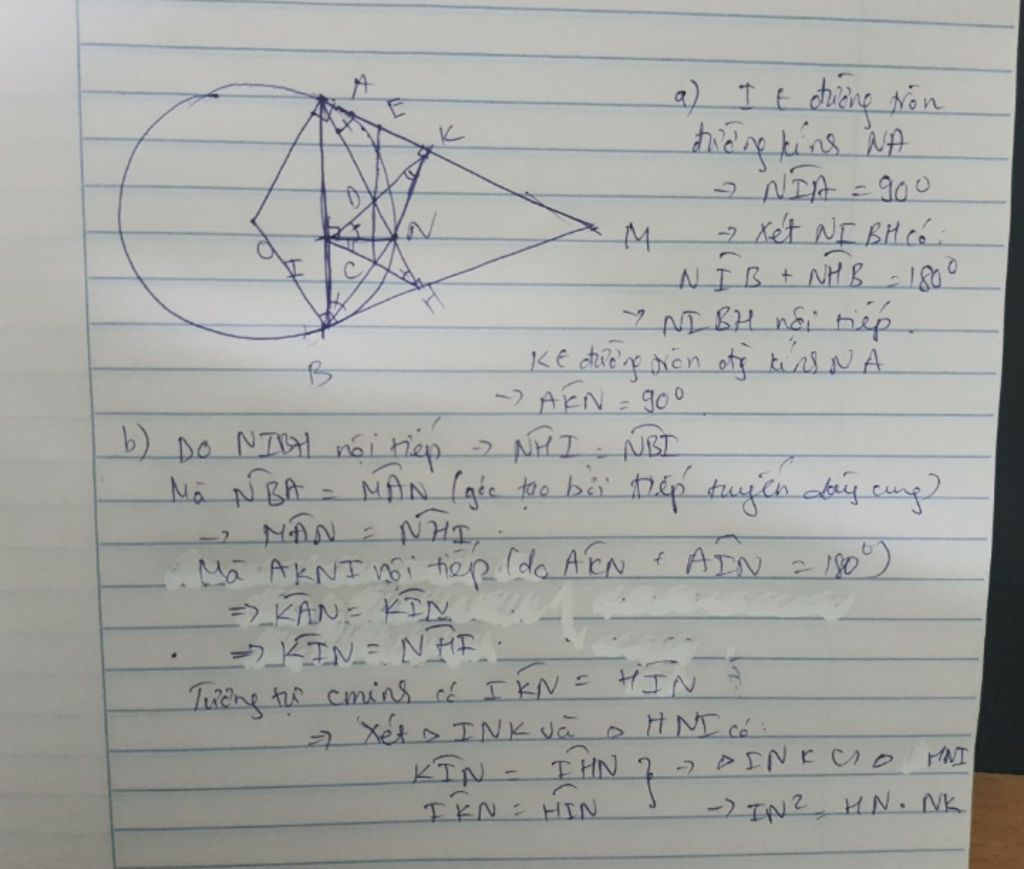 A
E
K
D
N
M
O
I
C
H
B
a) I ∈ đường tròn
đường kính NA
→ NIA = 90°
→ Xét NIBH có:
NIB + NHB = 180°
→ NIBH nội tiếp.
K ∈ đường tròn đg kính NA
→ AKN = 90°
b) Do NIBH nội tiếp → NHI = NBI
Mà NBA = MAN (góc tạo bởi tiếp tuyến dây cung)
→ MAN = NHI.
Mà AKNI nội tiếp (do AKN + AIN = 180°)
⇒ KAN = KIN
⇒ KIN = NHI.
Tương tự cminh có IKN = HIN
⇒ Xét △ INK và △ HNI có:
KIN = IHN } → △ INK ∽ △ HNI
IKN = HIN → IN² = HN . NK